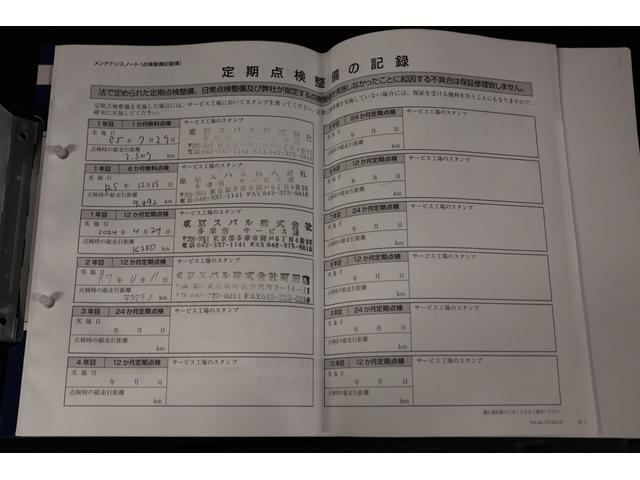 メンテナンスノート(点検整備記録簿)
定期点検整備の記録
法で定められた定期点検整備、日常点検整備及び弊社が指定する点検整備を実施しなかったことに起因する不具合は保証修理致しません。
定期点検整備を実施した場合には、サービス工場においてスタンプを貰ってください。
確実に実施してください。
1年目 1か月無料点検 サービス工場のスタンプ
実施日
R5年7月29日
点検時の総走行距離
km
東京スバル株式会社
TEL 042-337-1141 FAX 042-375-9810
1年目 6か月無料点検 サービス工場のスタンプ
実施日
R5年12月15日
点検時の総走行距離
9,492 km
多摩店 サービス課
〒206-0011 東京都多摩市関戸6丁目4番20
電 042-337-1141 FAX 042-375-9810
1年目 12か月定期点検 サービス工場のスタンプ
実施日
2024年4月29日
点検時の総走行距離
16330 km
東京スバル株式会社
多摩店 サービス課
〒206-0011 東京都多摩市関戸6丁目4番20
電 042-337-1141 FAX 042-375-9810
2年目 12か月定期点検 サービス工場のスタンプ
実施日
R7年11月11日
点検時の総走行距離
km
東京スバル株式会社町田店
3年目 24か月定期点検 サービス工場のスタンプ
実施日
年 月 日
点検時の総走行距離
km
4年目 12か月定期点検 サービス工場のスタンプ
実施日
年 月 日
点検時の総走行距離
km
5年目 24か月定期点検 サービス工場のスタンプ
実施日
年 月 日
点検時の総走行距離
km
6年目 12か月定期点検 サービス工場のスタンプ
実施日
年 月 日
点検時の総走行距離
km
7年目 24か月定期点検 サービス工場のスタンプ
実施日
年 月 日
点検時の総走行距離
km
8年目 12か月定期点検 サービス工場のスタンプ
実施日
年 月 日
点検時の総走行距離
km
9年目 24か月定期点検 サービス工場のスタンプ
実施日
年 月 日
点検時の総走行距離
km
10年目 12か月定期点検 サービス工場のスタンプ
実施日
年 月 日
点検時の総走行距離
km